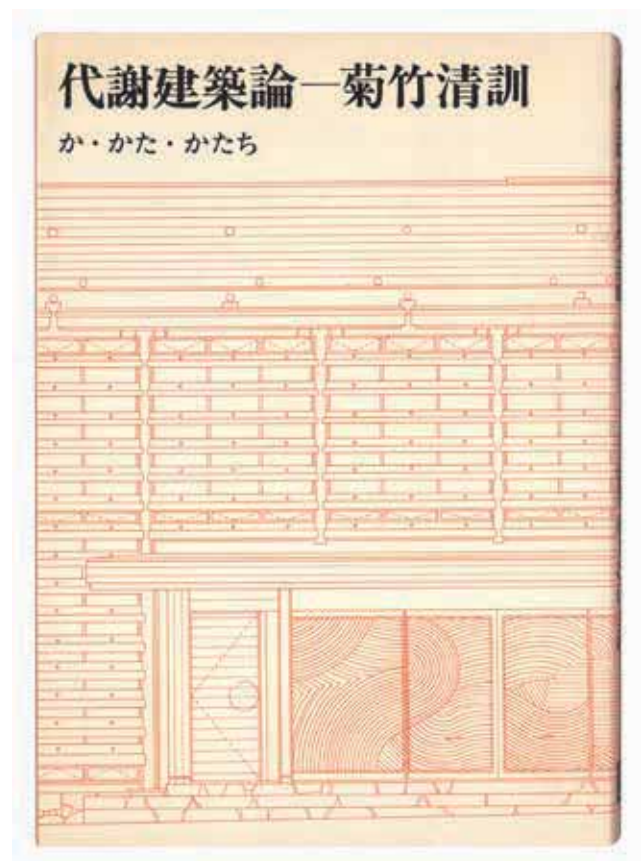 代謝建築論─菊竹清訓
か・かた・かたち